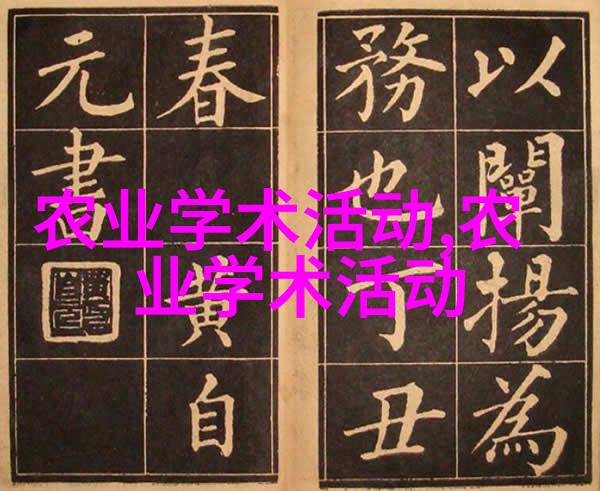 以闡揚為
務也丁丑
春黃自
元書
农业学术活动,农
业学术活动